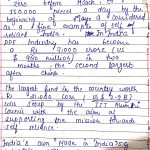 zero before March,
250,000 pieces a day by the
beginning of May, a considered
a fine example of self
reliant India. In India
PPE Industry has become
a ₹7,000 crore (US
$ 980 million) in two
months, the second largest
after China.
The largest fund in the country worth
₹ crore (US $ B)
was setup by the IIT Alumni
Council with the aim of
supporting the mission towards
self reliance.
India's own "Made in India" 5G